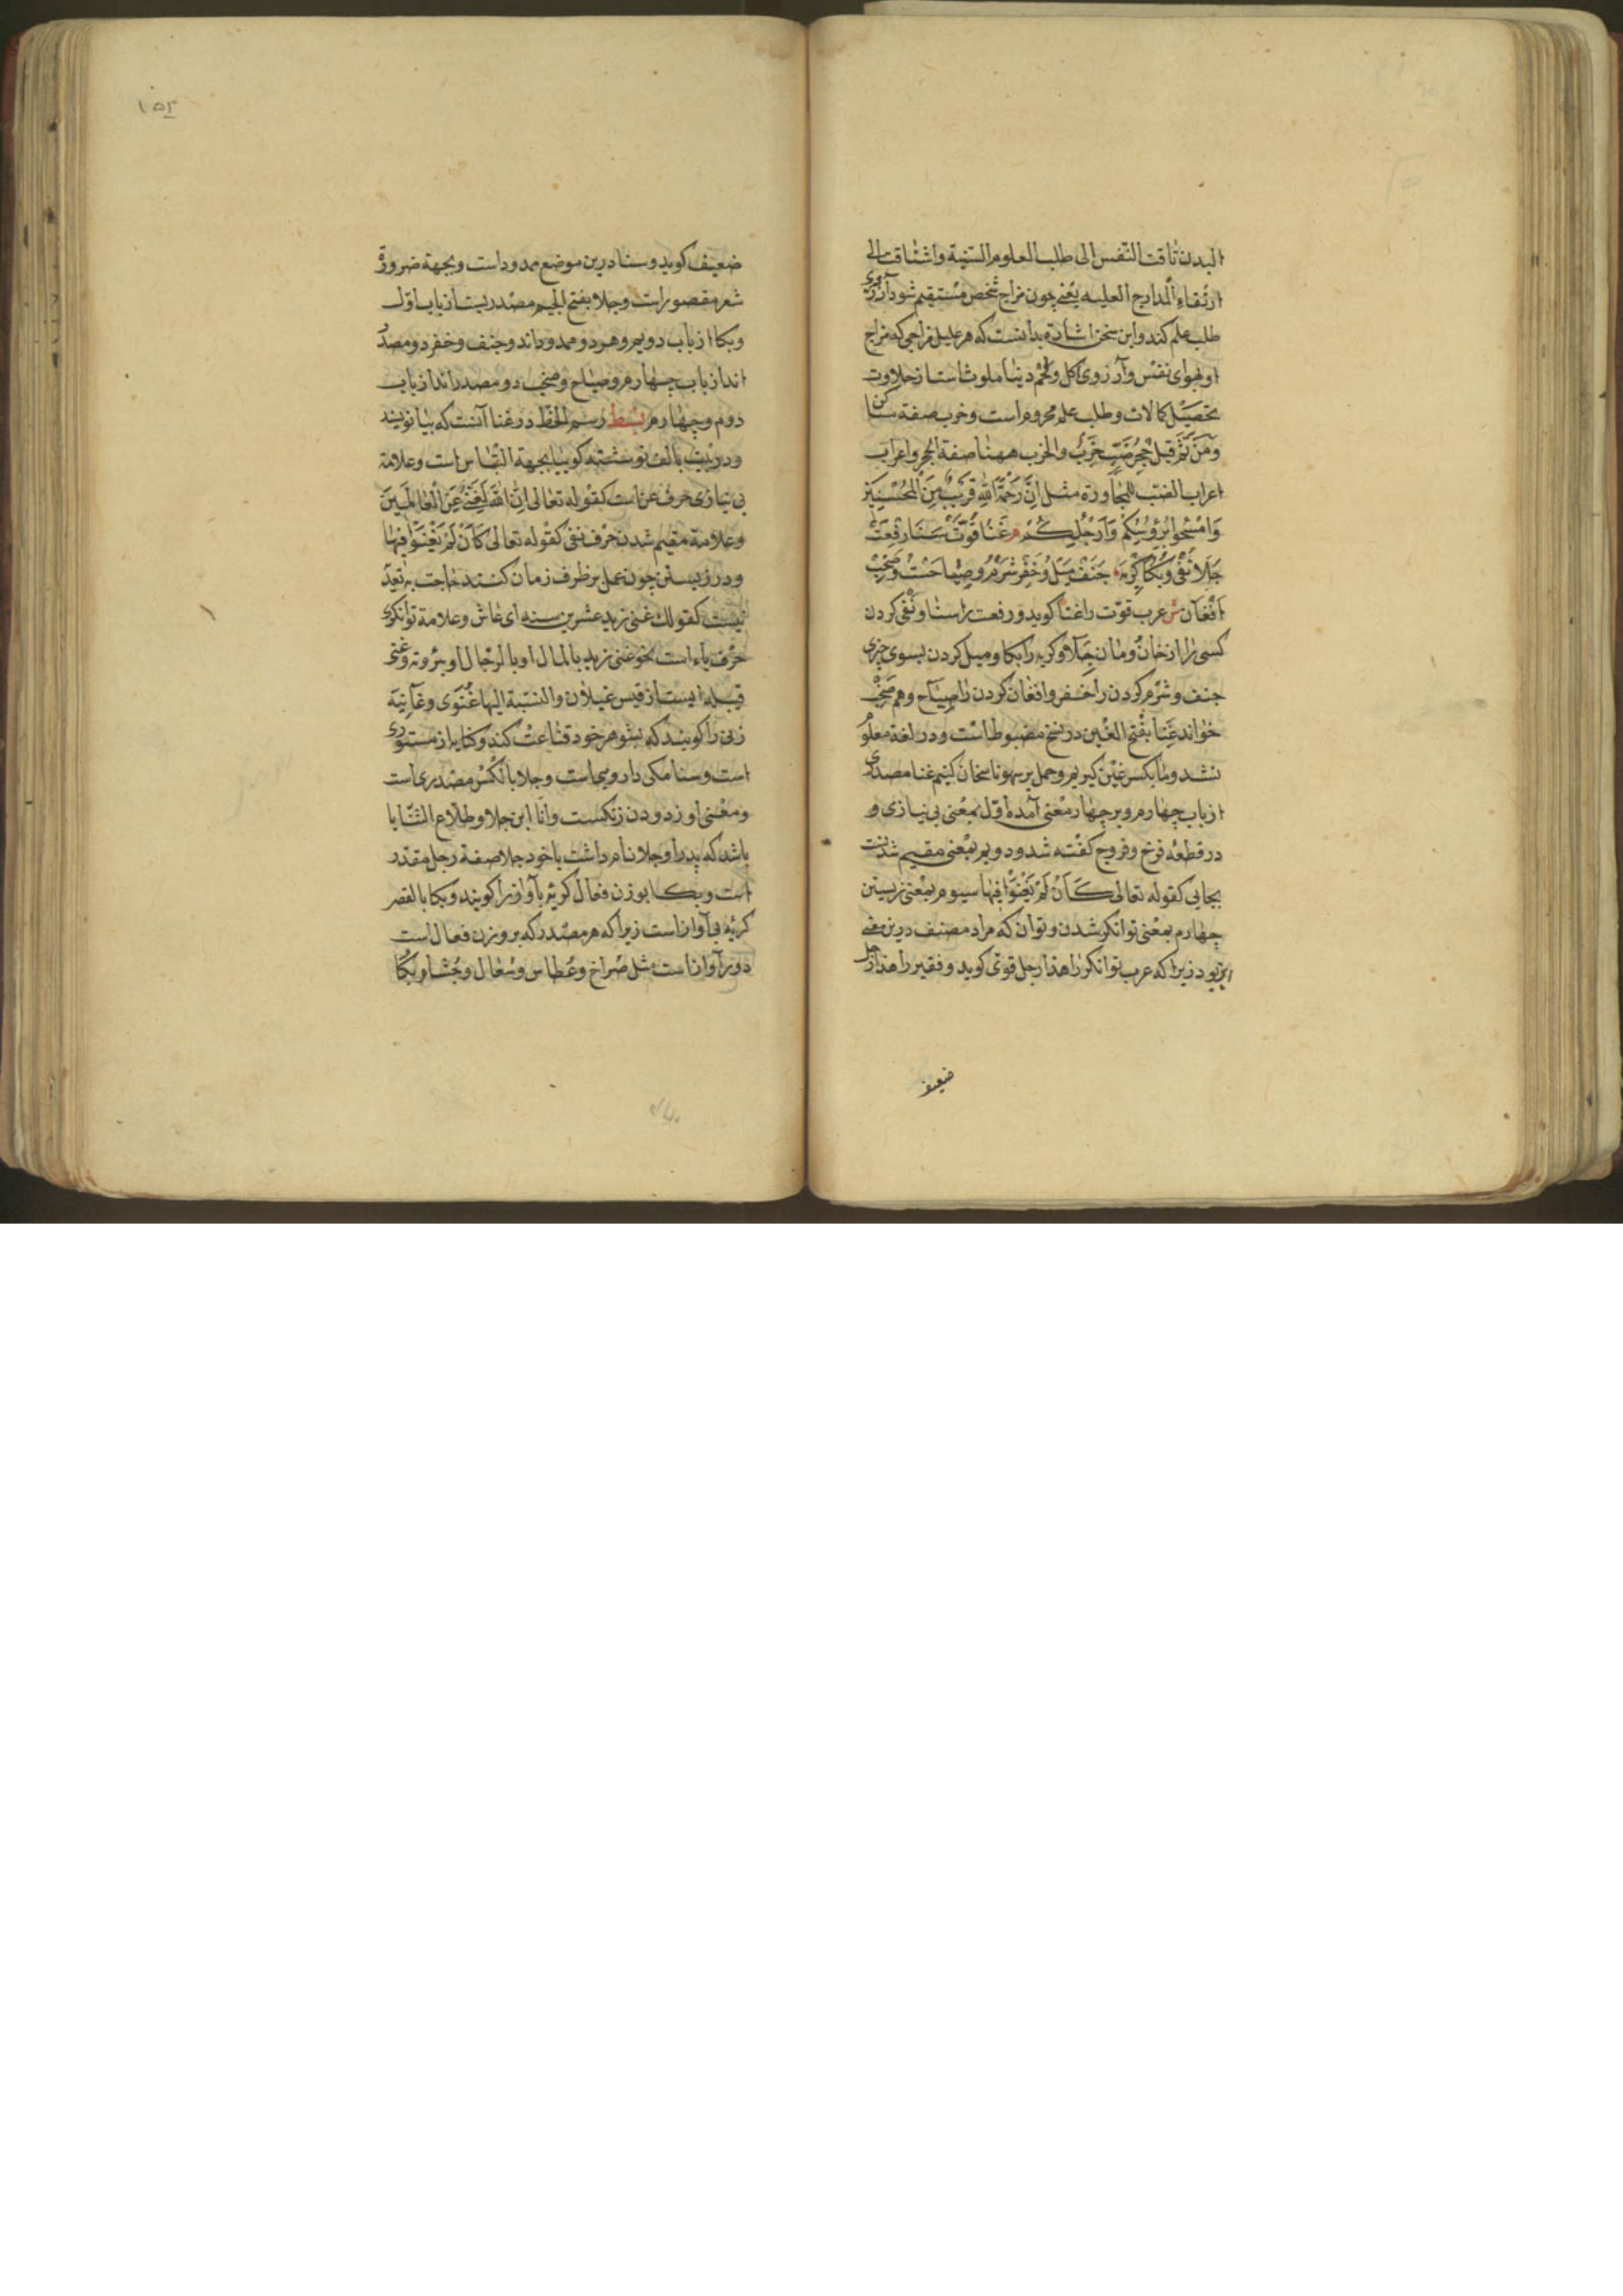 البدن تاقت النّفس الی طلب العلوم السّنیة واشتاقت الی
ارتقاء المدارج العلیه یعنی چون مزاج شخص مستقیم شود آرزوی
طلب علم کند و این سخن اشارة بدانست که هر علیل مزاجی که مزاج
او بهوای نفس و آرزوی اکل و لحم دنیا ملوث است از حلاوت
تحصیل کمالات و طلب علم محروم است و خرب صفة ساکن
ومن ثم قیل جحر ضبّ خرب والخرب ههنا صفة الجحر واعراب
اعراب الضب للمجاورة مثل انّ رحمة الله قریب من المحسنین
وامسحوا برؤسکم وارجلکم م غنا قوّت سنا رفعت
جلا نفی و بکا گریه جنف میل و خفر شرم و صیاحت و صخب
افغان ش عرب قوّت را غنا کوید و رفعت را سنا و نفی کردن
کسی را از خان و مان جلا و کریه را بکا و میل کردن بسوی چیزی
جنف و شرم کردن را خفر و افغان کردن را صیاح و هم صخب
خواند غنا بفتح الغین در نسخ مضبوط است و در لغة معلوم
نشد و ما بکسر غین کیریم و حمل بر سهو ناسخان کنیم غنا مصدری
از باب چهارم و بر چهار معنی آمده اوّل بمعنی بی نیازی و
در قطعه فرخ و فروج کفته شد و دویم بمعنی مقیم شدنت
بجایی کقوله تعالی کأن لم یغنوا فیها سیوم بمعنی زیستن
چهارم بمعنی توانکر شدن و توان که مراد مصنف درین معنی
این بود زیرا که عرب توانکر را هذا رجل قوی کوید و فقیر را هذا رجل
ضعیف
۱۵۲
ضعیف کوید و سنا درین موضع ممدود است و بجهة ضرورة
شعر مقصور است و جلا بفتح الجیم مصدریست از باب اوّل
و بکا از باب دویم و هر دو ممدود اند و جنف و خفر دو مصدر
اند از باب چهارم و صیاح و صخب دو مصدر اند از باب
دوم و چهارم بسط رسم الخط در غنا آنست که بیا نویسند
بی نیازی حرف عن است کقوله تعالی انّ الله لغنیّ عن العالمین
وعلامة مقیم شدن حرف نفی کقوله تعالی کأن لم یغنوا فیها
و در زیستن چون عمل بر ظرف زمان کنند حاجت به تعدّ
نیست کقولک غنی زید عشرین سنه ای عاش وعلامة توانکری
حرف باء است نحو غنی زید بالمال او بالرجال او بثروته و غنی
قبیله ایست از قیس غیلان والنسبة الیها غنوی و غانیة
زنی را کویند که بشوهر خود قناعت کند و کنایه از مستوری
است و سنا مکی داروییاست و جلا بالکسر مصدریاست
و معنی او زدودن زنکست وانا ابن جلا وطلاع الثنایا
باشد که پدر او جلا نام داشت یا خود جلا صفة رجل مقدر
است و بکا بوزن فعال کریه بآواز را کویند و بکا بالقصر
کریه بی آواز است زیرا که هر مصدر که بر وزن فعال است
دور آواز است مثل صراخ و عطاس و سعال و جشا و بکا